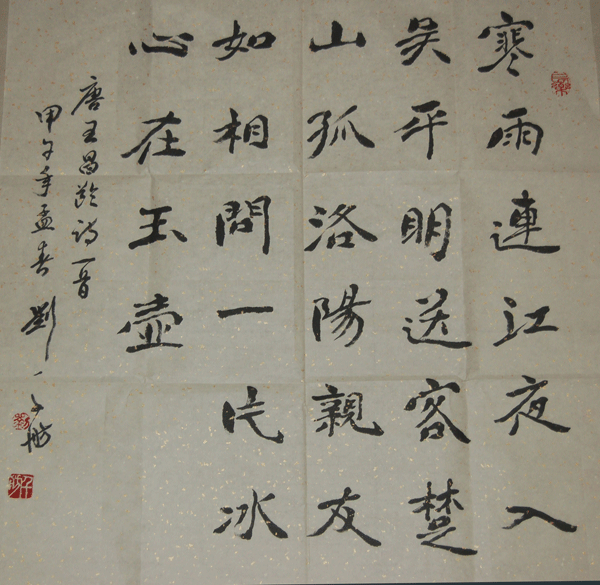 寒雨連江夜入
吴平明送客楚
山孤洛陽親友
如相問一片冰
心在玉壺
唐王昌齡詩一首
甲午年孟春劉